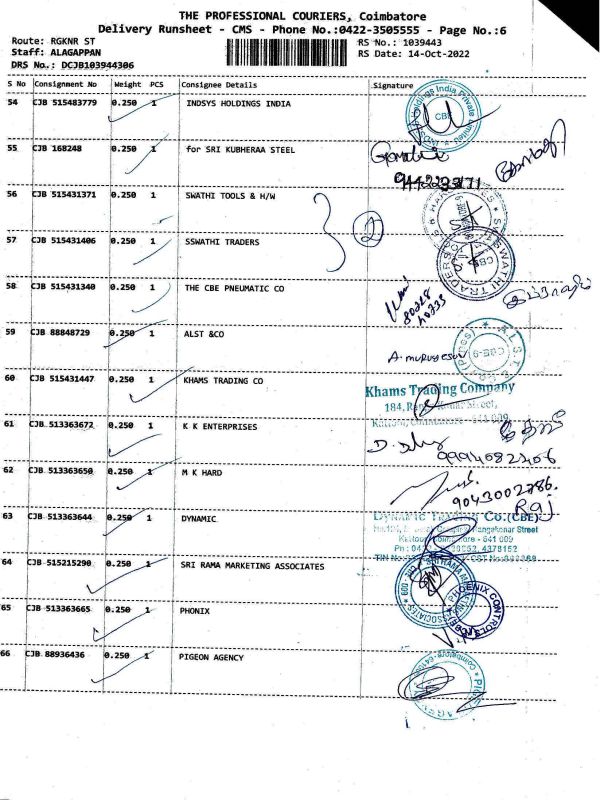 THE PROFESSIONAL COURIERS, Coimbatore
Delivery Runsheet - CMS - Phone No.:0422-3505555 - Page No.:6
Route: RGKNR ST RS No.: 1039443
Staff: ALAGAPPAN RS Date: 14-Oct-2022
DRS No.: DCJB103944306
S No Consignment No Weight PCS Consignee Details Signature
54 CJB 515483779 0.250 1 INDSYS HOLDINGS INDIA
CBE
55 CJB 168248 0.250 1 for SRI KUBHERAA STEEL
56 CJB 515431371 0.250 1 SWATHI TOOLS & H/W
2
57 CJB 515431406 0.250 1 SSWATHI TRADERS
SSWATHI TRADERS
CBE
58 CJB 515431340 0.250 1 THE CBE PNEUMATIC CO
59 CJB 88848729 0.250 1 ALST &CO
A. murugesan
CBE-9
60 CJB 515431447 0.250 1 KHAMS TRADING CO
Khams Trading Company
184, Street,
Coimbatore - 641 009
61 CJB 513363672 0.250 1 K K ENTERPRISES
62 CJB 513363650 0.250 1 M K HARD
9043002786.
Raj
63 CJB 513363644 0.250 1 DYNAMIC
DYNAMIC TRADING CO.(CBE)
Street
Kattoor, Coimbatore - 641 009
4378152
64 CJB 515215290 0.250 1 SRI RAMA MARKETING ASSOCIATES
65 CJB 513363665 0.250 1 PHONIX
PHOENIX CONTROLS
66 CJB 88936436 0.250 1 PIGEON AGENCY